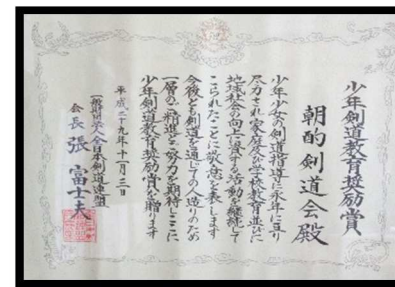 少年剣道教育奨励賞
朝酌剣道会殿
少年少女の剣道指導に永年に亘り
尽力され家庭及び学校教育並びに
地域社会の向上に資する活動を継続して
こられたことに敬意を表します
今後とも剣道を通じての人造りのため
一層のご精進とご努力を期待しここに
少年剣道教育奨励賞を贈ります
平成二十九年十一月三日
一般財団法人全日本剣道連盟
会長 張 富士夫